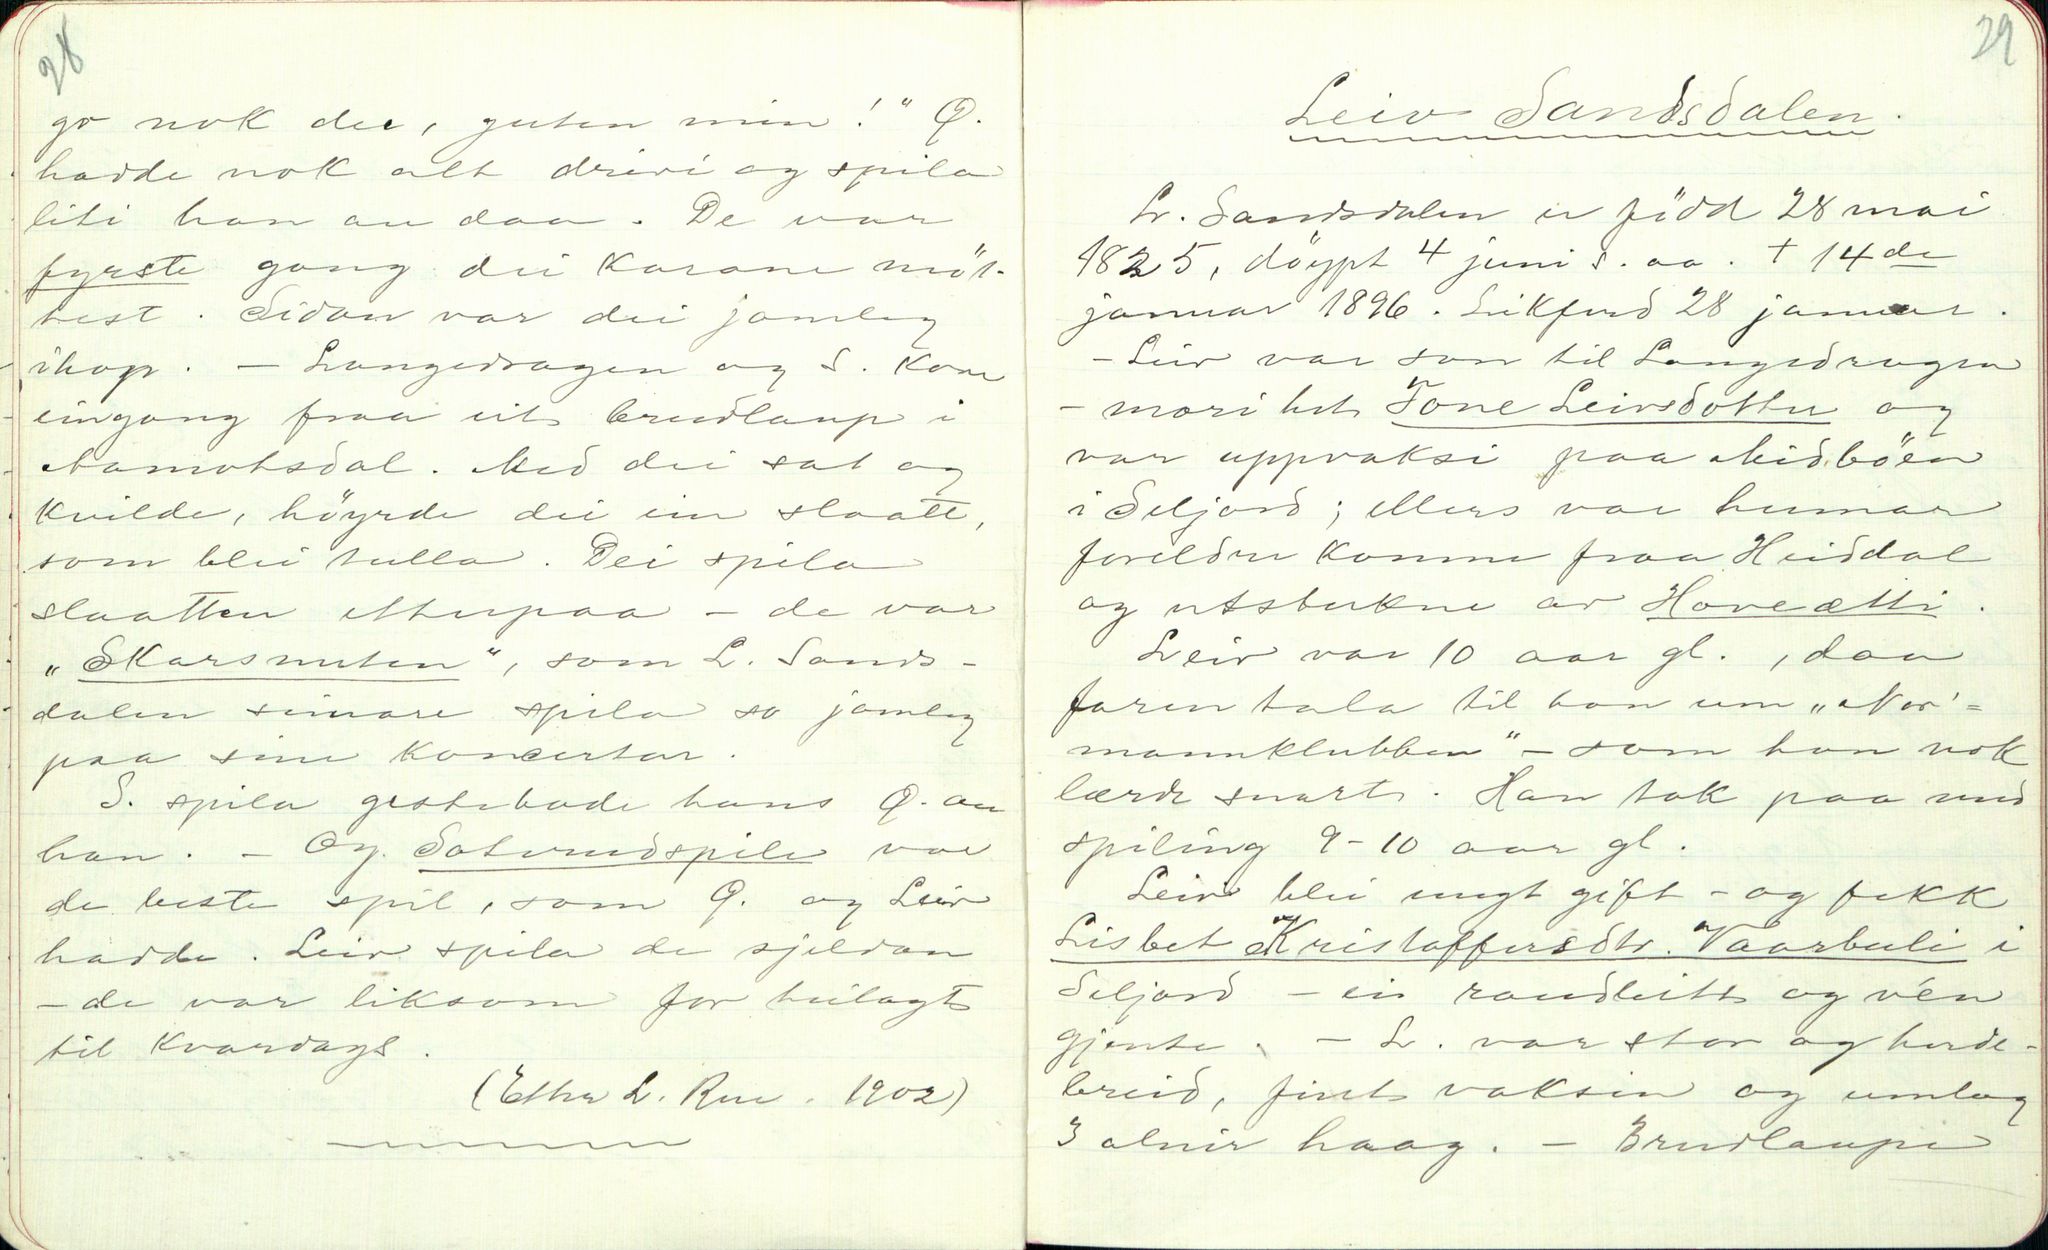 28
go nok dee, guten min!" Q.
hadde nok alt drivi og spila
liti han au daa. De var
fyrste gong dei karane möt-
test. Sidan var dei jamleg
ihop. – Langedragen og S. kom
eingong fraa eit brudlaup i
Aamotsdal. Med dei sat og
kvilde, höyrde dei ein slaatt,
som blei tulla. Dei spila
slaatten etterpaa – de var
„Skarsnuten", som L. Sands-
dalen seinare spila so jamleg
paa sine koncertar.
S. spila gestebode hans Q. au
han. – Og Sataneidspile var
de beste spil, som Q. og Leiv
hadde. Leiv spila de sjeldan
– de var liksom for heilagt
til kvardags.
(Etter L. Rue. 1902)
29
Leiv Sandsdalen.
Lv. Sandsdalen er född 28 mai
1825, döypt 4 juni s. aa. † 14de
januar 1896. Likferd 28 januar.
– Leiv var son til Langedragen
– mori het Tone Leivsdotter og
var uppvaksi paa Midböen
i Seljord; ellers var hennar
foreldre komne fraa Heiddal
og utsteikne av Hoveætti.
Leiv var 10 aar gl., daa
faren tala til han um „Nor'-
mannklubben" – som han nok
lærde snart. Han tok paa med
spiling 9–10 aar gl.
Leiv blei ungt gift – og fekk
Lisbet Kristoffersdtr. Vaarbuli i
Seljord – ei raudleitt og vén
gjente. – Lv. var stor og herde-
breid, fint vaksin og umlag
3 alnir haag. – Brudlaupe